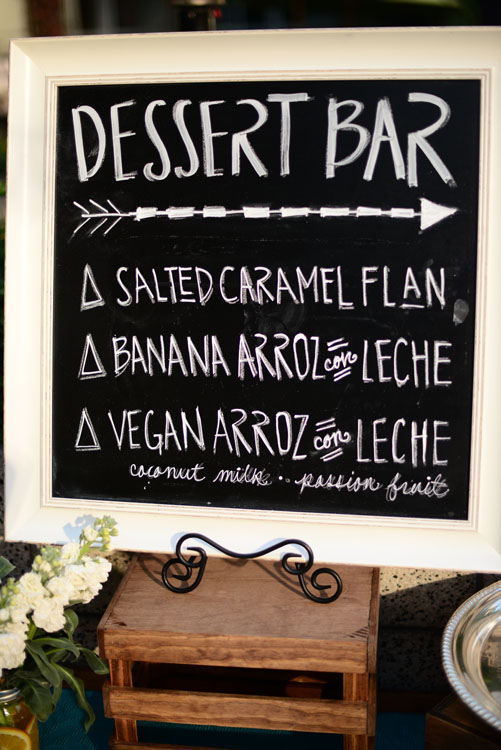 DESSERT BAR
SALTED CARAMEL FLAN
BANANA ARROZ con LECHE
VEGAN ARROZ con LECHE
coconut milk · passion fruit